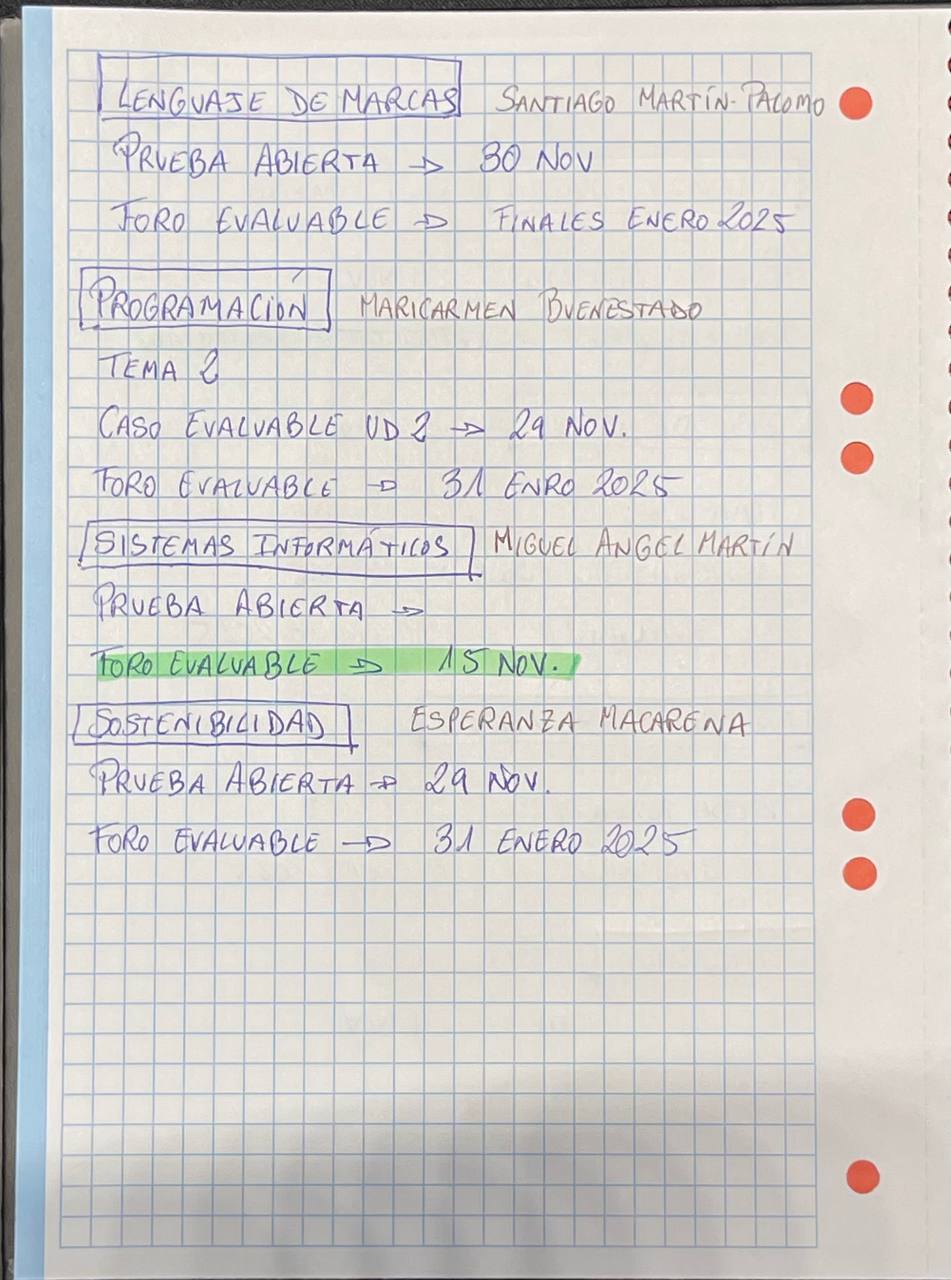 LENGUAJE DE MARCAS SANTIAGO MARTÍN-PALOMO
PRUEBA ABIERTA → 30 NOV
FORO EVALUABLE → FINALES ENERO 2025
PROGRAMACIÓN MARICARMEN BUENESTADO
TEMA 2
CASO EVALUABLE UD 2 → 29 NOV.
FORO EVALUABLE → 31 ENRO 2025
SISTEMAS INFORMÁTICOS MIGUEL ANGEL MARTÍN
PRUEBA ABIERTA →
FORO EVALUABLE → 15 NOV.
SOSTENIBILIDAD ESPERANZA MACARENA
PRUEBA ABIERTA → 29 NOV.
FORO EVALUABLE → 31 ENERO 2025